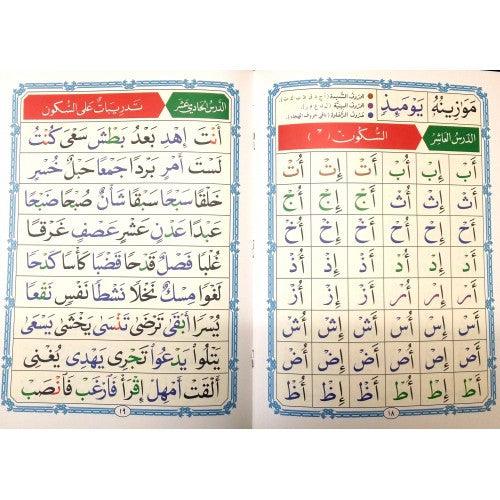 مَوَٰزِينُهُۥ يَوْمَئِذٍ
الدرس العاشر السُّكُون ( ْ )
أَبْ إِبْ أُبْ أَتْ إِتْ أُتْ
أَثْ إِثْ أُثْ أَجْ إِجْ أُجْ
أَحْ إِحْ أُحْ أَخْ إِخْ أُخْ
أَدْ إِدْ أُدْ أَذْ إِذْ أُذْ
أَرْ إِرْ أُرْ أَزْ إِزْ أُزْ
أَسْ إِسْ أُسْ أَشْ إِشْ أُشْ
أَصْ إِصْ أُصْ أَضْ إِضْ أُضْ
أَطْ إِطْ أُطْ أَظْ إِظْ أُظْ
١٨
الدرس الحادي عشر تدريبات على السكون
أَنتَ إِهْدِ بَعْدُ بَطْشَ سَعْىَ كُنتُ
لَسْتَ أَمْرِ بَرْدًا جَمْعًا حَبْلٌ خُسْرٍ
خَلْقًا سَبْحًا سَبْقًا شَأْنٌ صُبْحًا ضَبْحًا
عَبْدًا عَدْنٍ عَشْرٍ عَصْفٍ غَرْقًا
غُلْبًا فَصْلٌ قَدْحًا قَضْبًا كَأْسًا كَدْحًا
لَغْوًا مِسْكٌ نَخْلًا نَشْطًا نَفْسٍ نَقْعًا
يُسْرًا أَبْقَىٰ تَرْضَىٰ تَنسَىٰ يَخْشَىٰ يَسْعَىٰ
يَتْلُوا۟ يَدْعُوا۟ تَجْرِى يَهْدِى يُغْنِى
أَلْقَتْ أَمْهِلْ إِقْرَأْ فَٱرْغَب فَٱنصَبْ
١٩